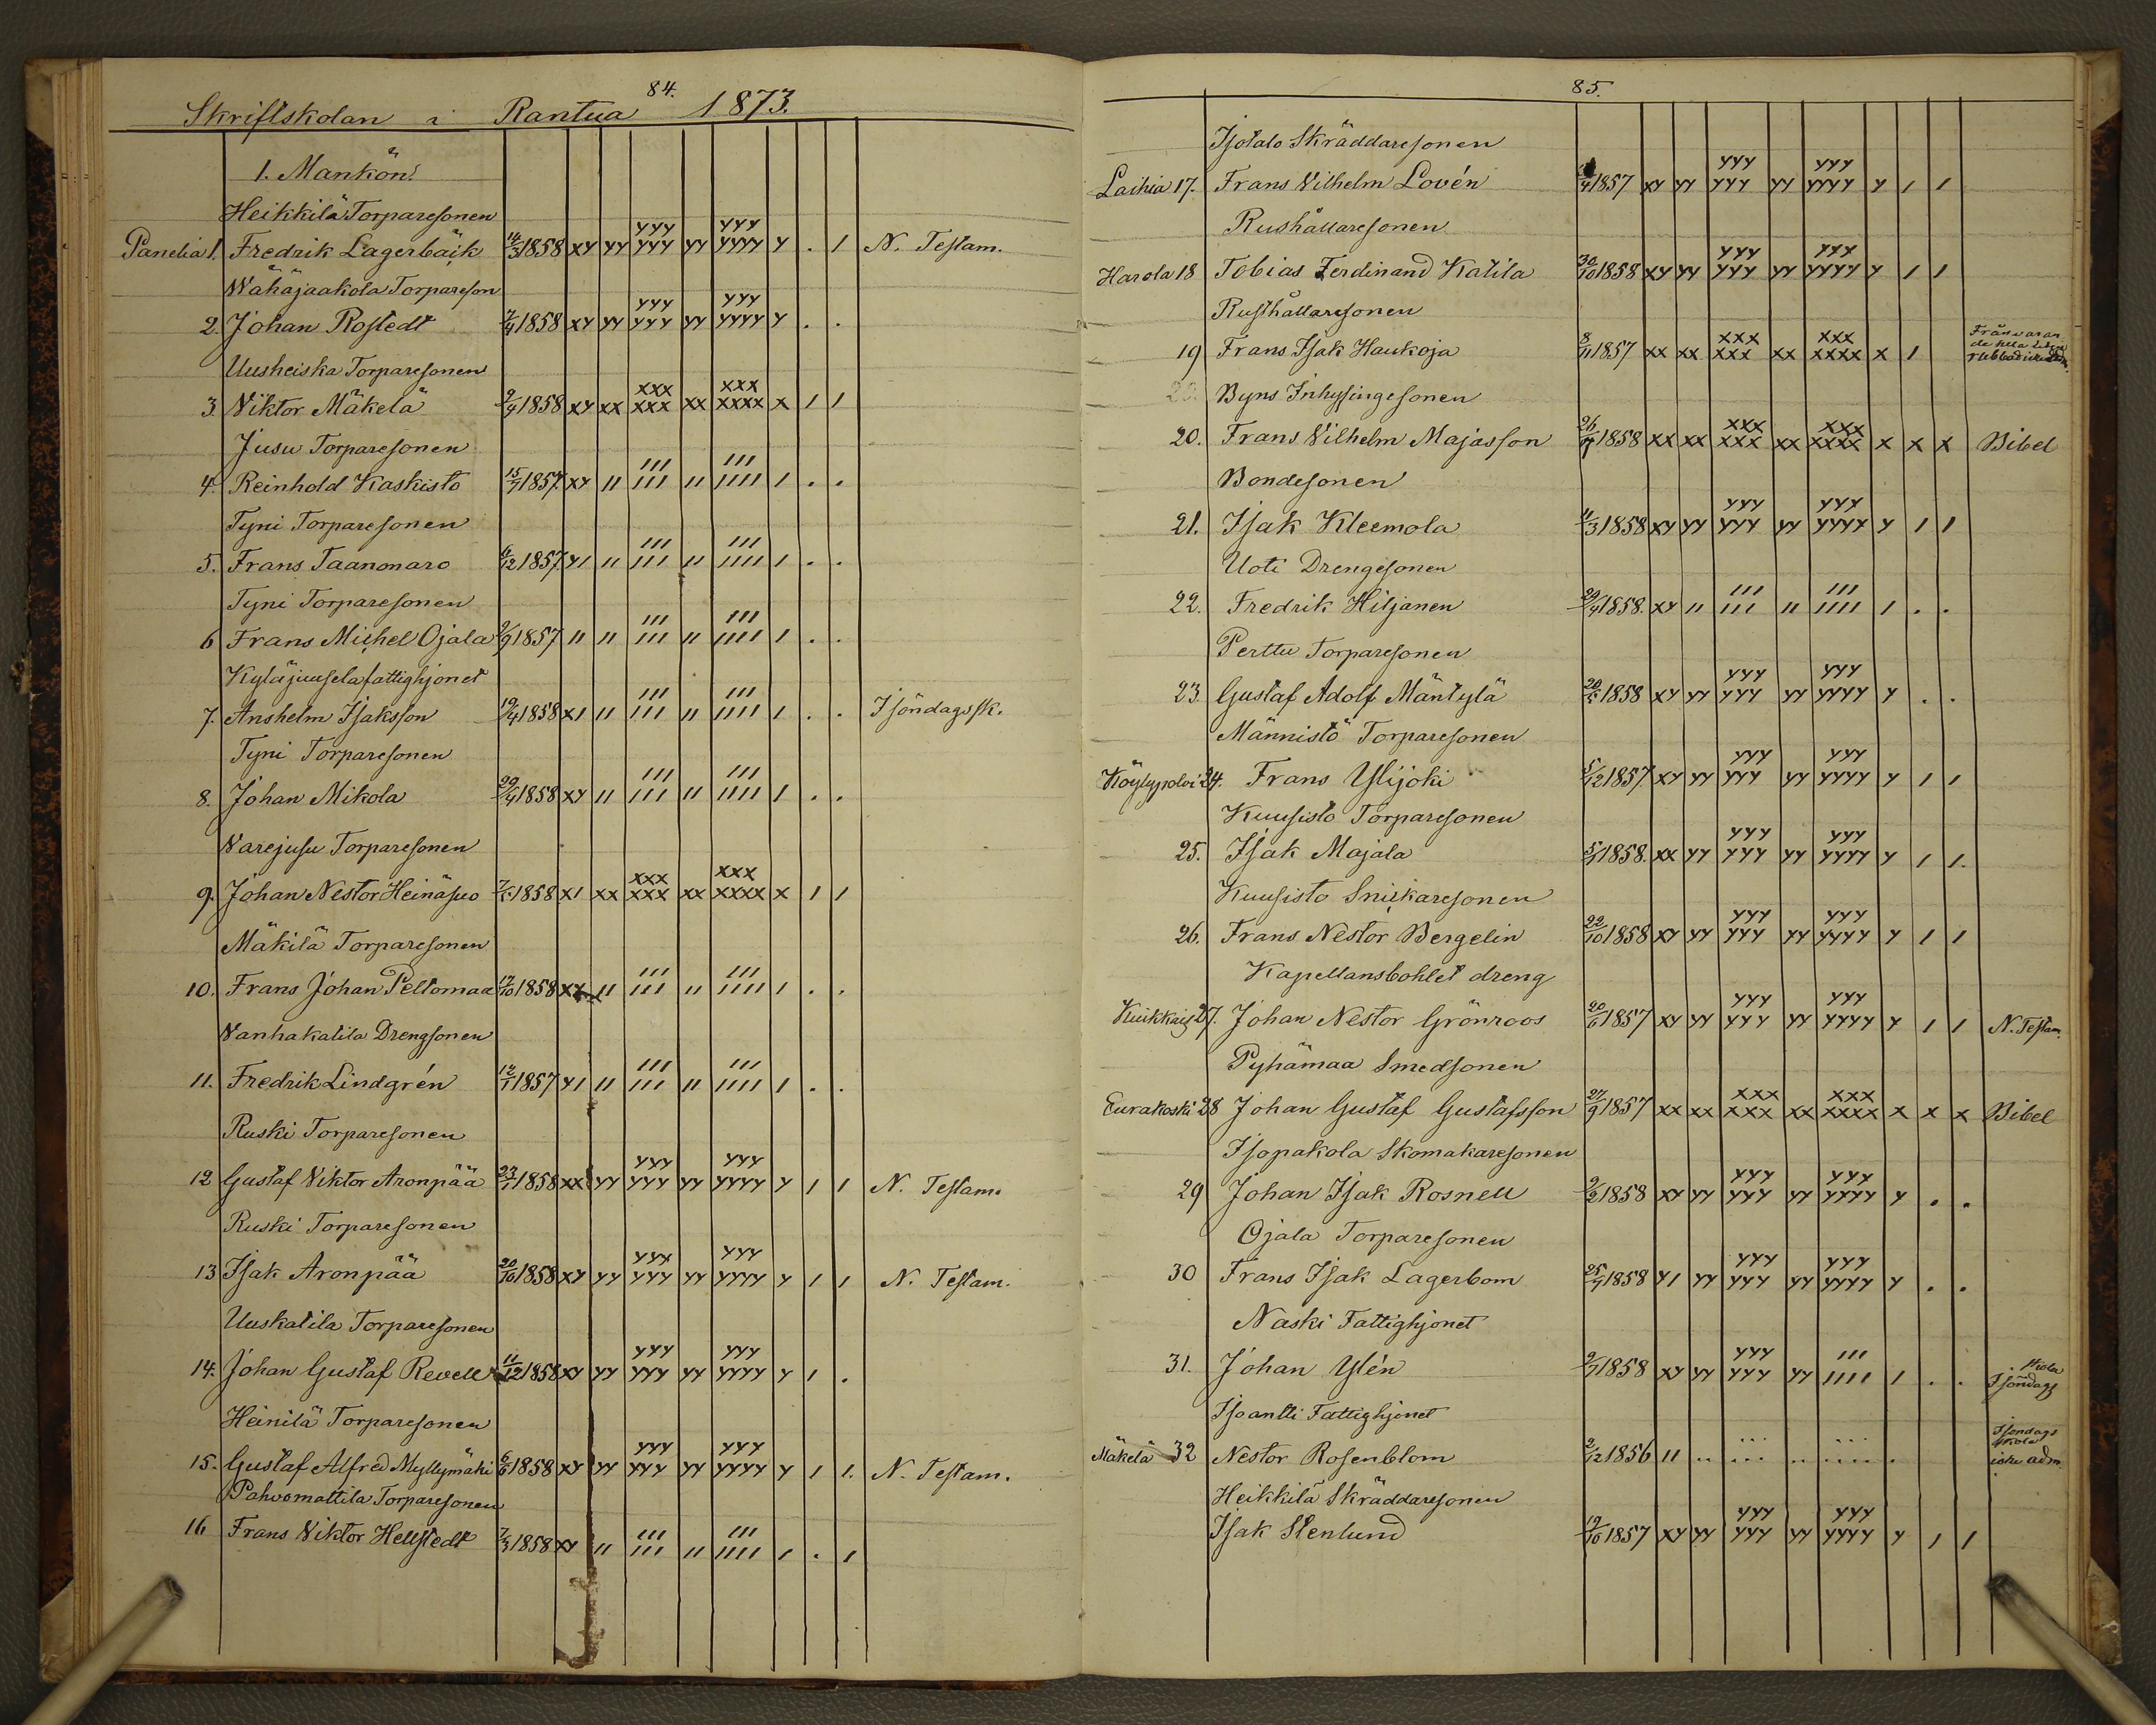 84.
Skriftskolan i Rantua 1873.
1. Mankön.
Heikkilä Torparesonen
Panelia 1. Fredrik Lagerbäck 14/3 1858 xy yy yyy yyy yy yyy yyyy y . 1 N. Testam.
Wähäjaakola Torpareson
2. Johan Rostedt 7/4 1858 xy yy yyy yyy yy yyy yyyy y . .
Uusheiska Torparesonen
3. Viktor Mäkelä 9/4 1858 xy xx xxx xxx xx xxx xxxx x 1 1
Jusu Torparesonen
4. Reinhold Kaskisto 15/7 1857 xy 11 111 111 11 111 1111 1 . .
Tyni Torparesonen
5. Frans Taanonaro 6/12 1857 y1 11 111 111 11 111 1111 1 . .
Tyni Torparesonen
6 Frans Michel Ojala 9/9 1857 11 11 111 111 11 111 1111 1 . .
Kyläjuusela fattighjonet
7. Anshelm Isaksson 19/4 1858 x1 11 111 111 11 111 1111 1 . . I söndagssk.
Tyni Torparesonen
8. Johan Mikola 29/4 1858 xy 11 111 111 11 111 1111 1 . .
Warejusu Torparesonen
9. Johan Nestor Heinäsuo 1858 x1 xx xxx xxx xx xxx xxxx x 1 1
Mäkilä Torparesonen
10. Frans Johan Peltomaa 17/10 1858 xy 11 111 111 11 111 1111 1 . .
Vanhakatila Drengsonen
11. Fredrik Lindgrén 12/1 1857 y1 11 111 111 11 111 1111 1 . .
Ruski Torparesonen
12 Gustaf Viktor Aronpää 23/1 1858 xx yy yyy yyy yy yyy yyyy y 1 1 N. Testam.
Ruski Torparesonen
13 Isak Aronpää 20/10 1858 xy yy yyy yyy yy yyy yyyy y 1 1 N. Testam.
Uuskatila Torparesonen
14. Johan Gustaf Revell 11/12 1858 xy yy yyy yyy yy yyy yyyy y 1 .
Heinilä Torparesonen
15. Gustaf Alfred Myllymäki 6/6 1858 xy yy yyy yyy yy yyy yyyy y 1 1. N. Testam.
Pahvomattila Torparesonen
16 Frans Viktor Hellstedt 7/3 1858 xy 11 111 111 11 111 1111 1 . 1
85.
Isotalo Skräddaresonen
Laihia 17. Frans Vilhelm Lovén 1857 xy yy yyy yyy yy yyy yyyy y 1 1
Rushållaresonen
Harola 18 Tobias Ferdinand Katila 30/10 1858 xy yy yyy yyy yy yyy yyyy y 1 1
Rusthållaresonen
19 Frans Isak Haukoja 8/11 1857 xx xx xxx xxx xx xxx xxxx x 1 Frånvaran
Byns Inhysingesonen
20. Frans Vilhelm Majasson 1858 xx xx xxx xxx xx xxx xxxx x x x Bibel
Bondesonen
21. Isak Kleemola 11/3 1858 xy yy yyy yyy yy yyy yyyy y 1 1
Uoti Drengesonen
22. Fredrik Hiljanen 29/4 1858. xy 11 111 111 11 111 1111 1 . .
Perttu Torparesonen
23. Gustaf Adolf Mäntylä 1858 xy yy yyy yyy yy yyy yyyy y . .
Männistö Torparesonen
Köylypolvi 24. Frans Ylijoki 5/12 1857 xy yy yyy yyy yy yyy yyyy y 1 1
Kuusisto Torparesonen
25. Isak Majala 1858. xx yy yyy yyy yy yyy yyyy y 1 1.
Kuusisto Snickaresonen
26. Frans Nestor Bergelin 22/10 1858 xy yy yyy yyy yy yyy yyyy y 1 1
Kapellansbohlet dreng
Kuikkais 27. Johan Nestor Grönroos 20/6 1857 xy yy yyy yyy yy yyy yyyy y 1 1 N. Testam.
Pyhämaa Smedsonen
Eurakoski 28 Johan Gustaf Gustafsson 27/9 1857 xx xx xxx xxx xx xxx xxxx x x x Bibel
Isopakola Skomakaresonen
29 Johan Isak Rosnell 9/2 1858 xy yy yyy yyy yy yyy yyyy y . .
Ojala Torparesonen
30 Frans Isak Lagerbom 25/7 1858 y1 yy yyy yyy yy yyy yyyy y . .
Naski Fattighjonet
31. Johan Ylén 9/7 1858 xy yy yyy yyy yy 111 1111 1 . . Skola I söndags
Isoantti Fattighjonet
Mäkelä 32 Nestor Rosenblom 2/12 1856 11 .. ... ... .. ... .... . I söndags skola icke adm.
Heikkilä Skräddaresonen
Isak Stenlund 19/10 1857 xy yy yyy yyy yy yyy yyyy y 1 1